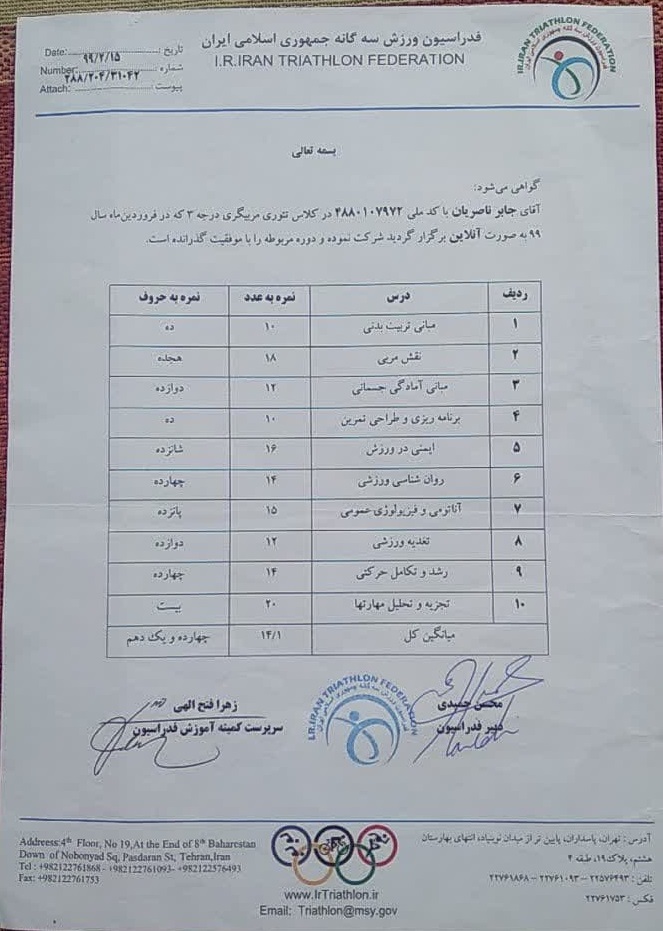 فدراسیون ورزش سه گانه جمهوری اسلامی ایران
I.R.IRAN TRIATHLON FEDERATION
I.R.IRAN TRIATHLON FEDERATION
فدراسیون ورزش سه گانه جمهوری اسلامی ایران
تاریخ : ۹۹/۲/۱۵ Date:
شماره : ۲۸۸/۲۰۴/۳۱۰۴۲ Number:
پیوست : Attach:
بسمه تعالی
گواهی می‌شود:
آقای جابر ناصریان با کد ملی ۴۸۸۰۱۰۷۹۷۲ در کلاس تئوری مربیگری درجه ۳ که در فروردین‌ماه سال
۹۹ به صورت آنلاین برگزار گردید شرکت نموده و دوره مربوطه را با موفقیت گذرانده است.
ردیف درس نمره به عدد نمره به حروف
۱ مبانی تربیت بدنی ۱۰ ده
۲ نقش مربی ۱۸ هجده
۳ مبانی آمادگی جسمانی ۱۲ دوازده
۴ برنامه ریزی و طراحی تمرین ۱۰ ده
۵ ایمنی در ورزش ۱۶ شانزده
۶ روان شناسی ورزشی ۱۴ چهارده
۷ آناتومی و فیزیولوژی عمومی ۱۵ پانزده
۸ تغذیه ورزشی ۱۲ دوازده
۹ رشد و تکامل حرکتی ۱۴ چهارده
۱۰ تجزیه و تحلیل مهارتها ۲۰ بیست
میانگین کل ۱۴/۱ چهارده و یک دهم
محسن حمیدی
دبیر فدراسیون
I.R.IRAN TRIATHLON FEDERATION
فدراسیون ورزش سه گانه جمهوری اسلامی ایران
زهرا فتح الهی
سرپرست کمیته آموزش فدراسیون
آدرس: تهران، پاسداران، پایین تر از میدان نوبنیاد، انتهای بهارستان
هشتم، پلاک ۱۹، طبقه ۴
تلفن: ۲۲۵۷۶۴۹۳ – ۲۲۷۶۱۰۹۳ – ۲۲۷۶۱۸۶۸
فکس: ۲۲۷۶۱۷۵۳
Addreess:4th Floor, No 19,At the End of 8th Baharestan
Down of Nobonyad Sq, Pasdaran St, Tehran,Iran
Tel : +982122761868 - +982122761093- +982122576493
Fax: +982122761753
www.IrTriathlon.ir
Email: Triathlon@msy.gov